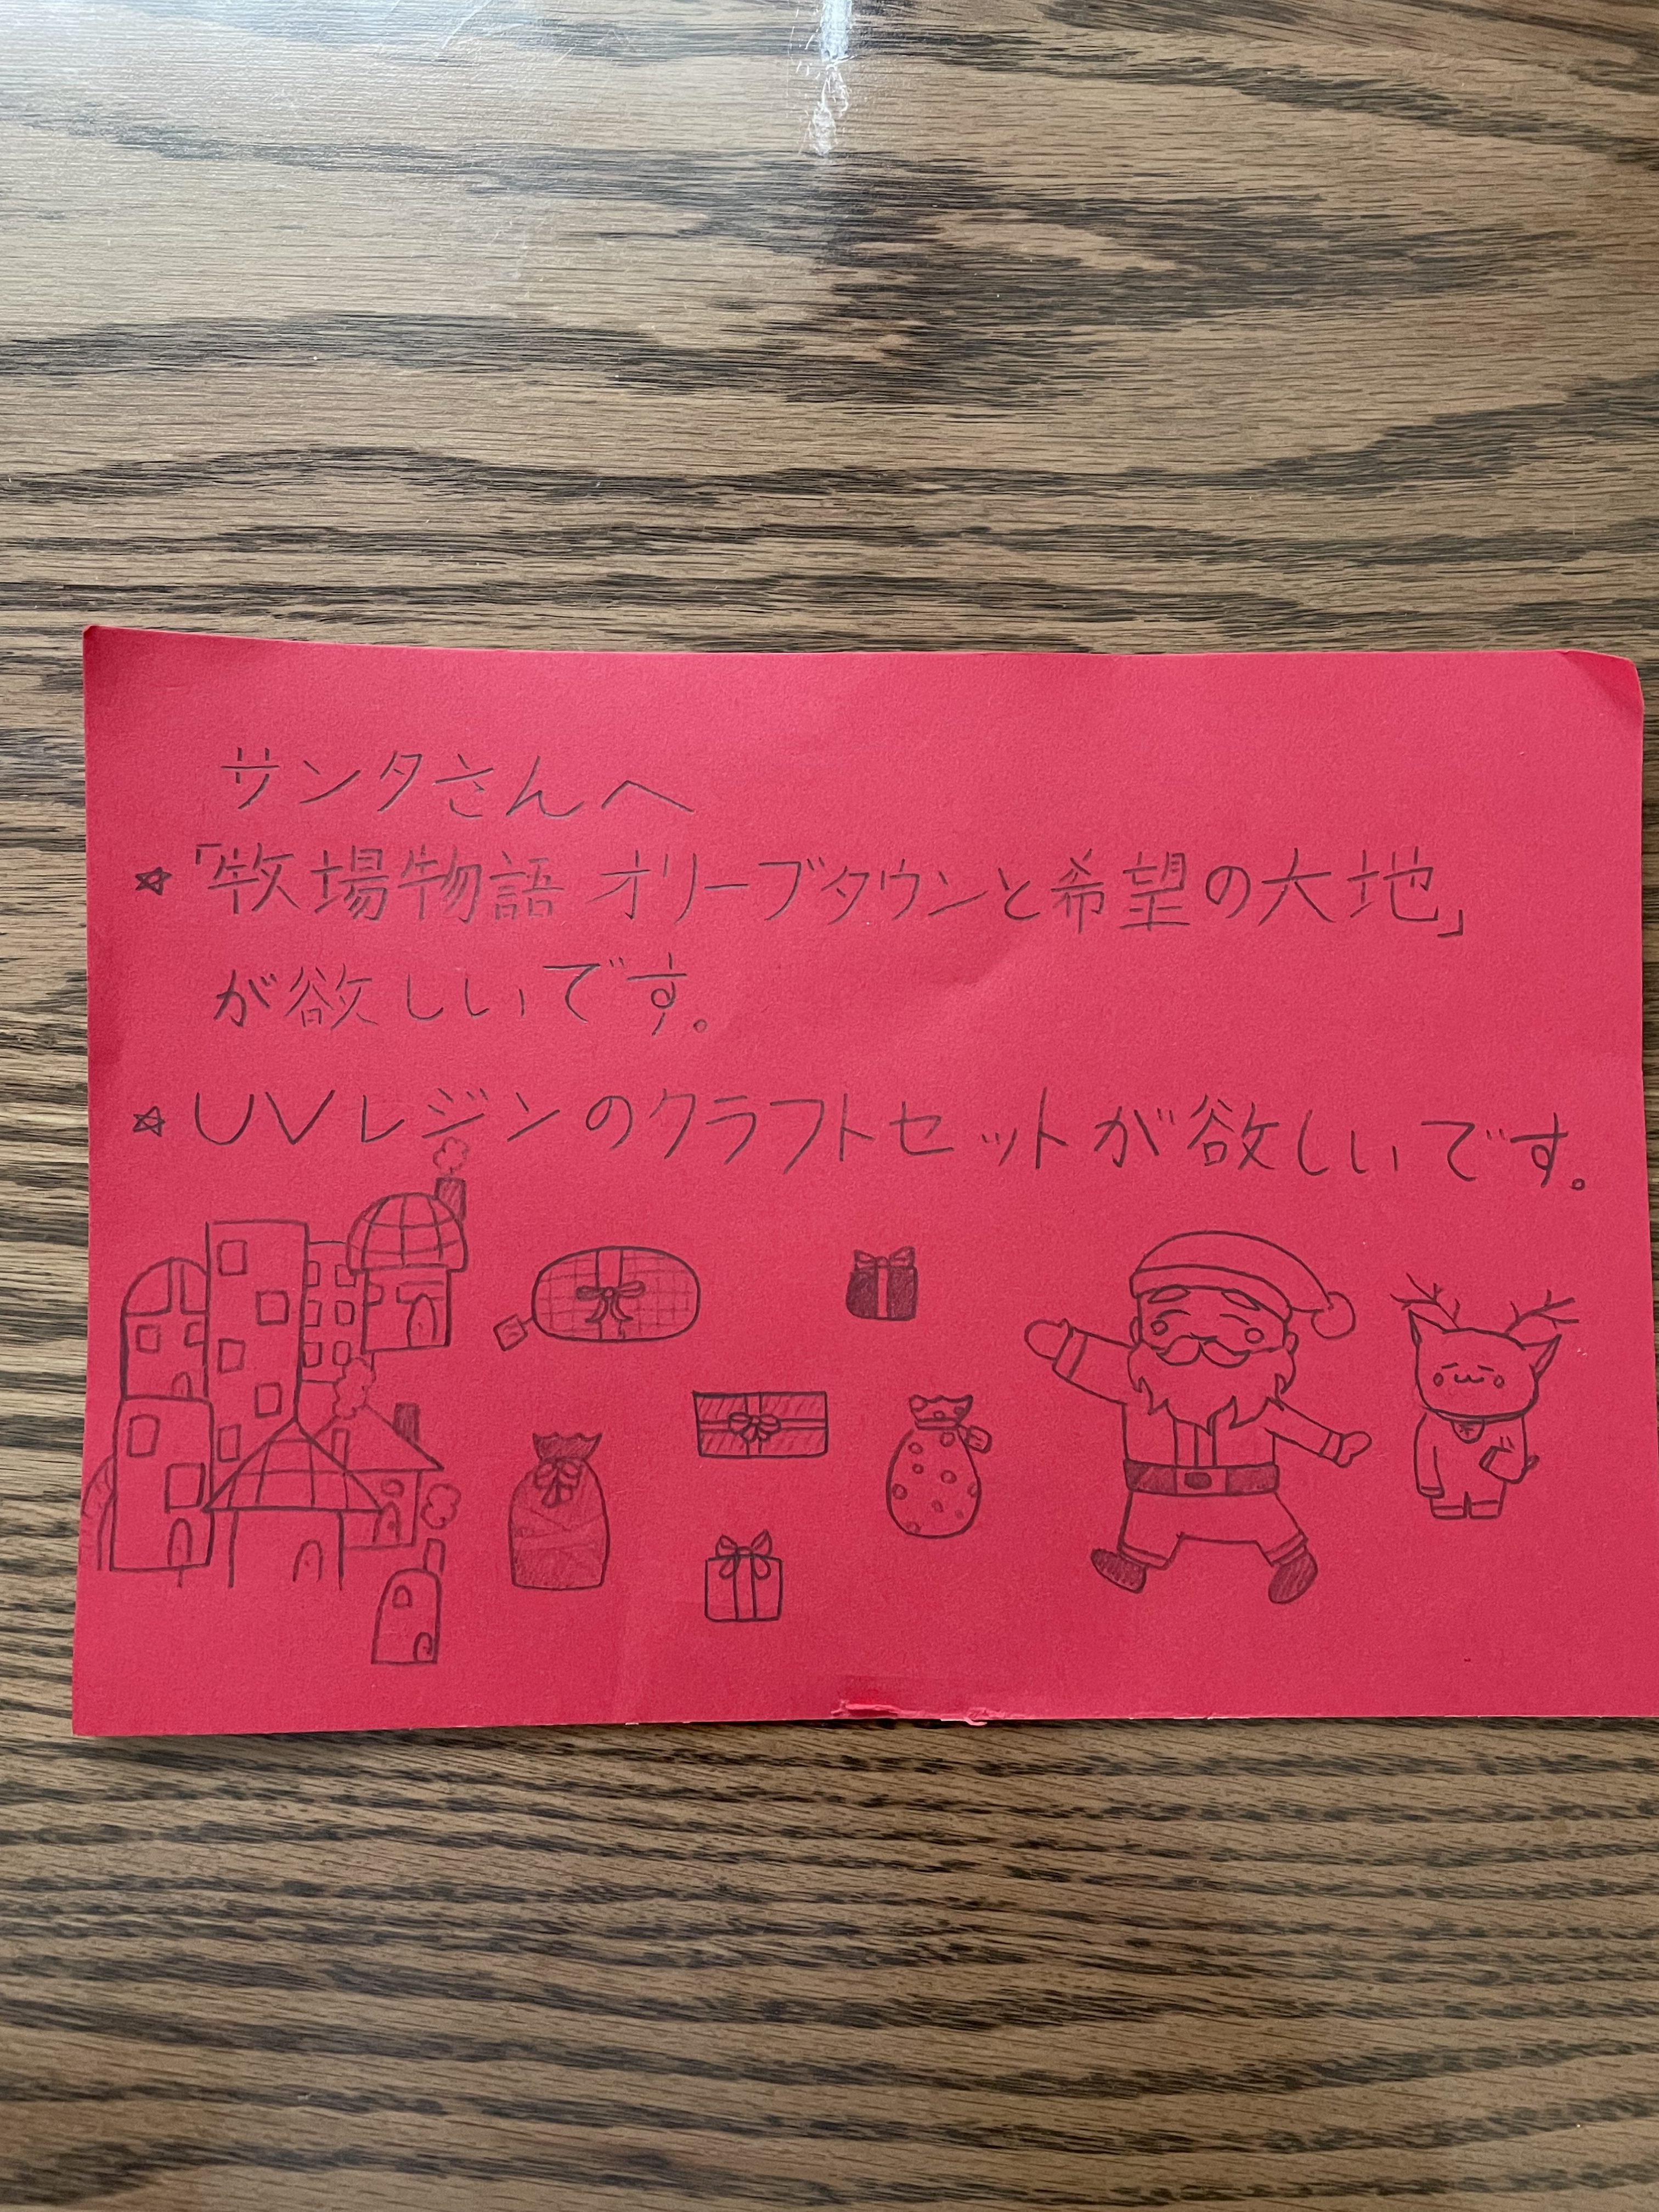 サンタさんへ
☆「牧場物語 オリーブタウンと希望の大地」
が欲しいです。
☆UVレジンのクラフトセットが欲しいです。